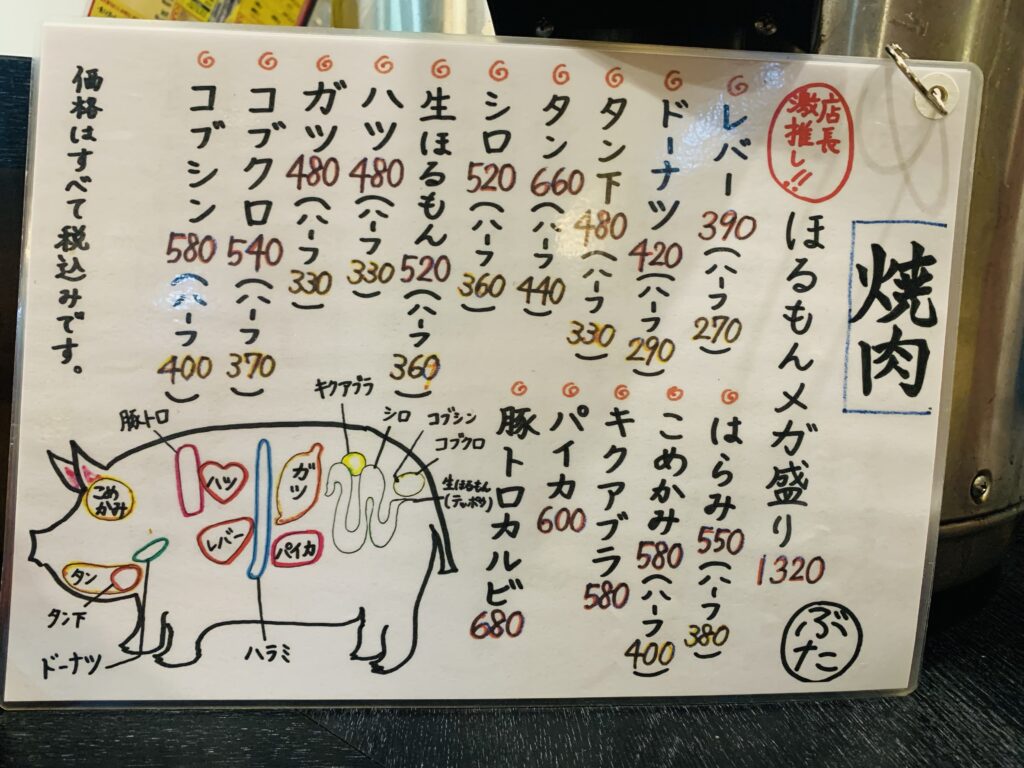 焼肉
店長
激推し!!
ほるもんメガ盛り 1320
ぶた
レバー 390 (ハーフ 270)
ドーナツ 420 (ハーフ 290)
タン下 480 (ハーフ 330)
タン 660 (ハーフ 440)
シロ 520 (ハーフ 360)
生ほるもん 520 (ハーフ 360)
ハツ 480 (ハーフ 330)
ガツ 480 (ハーフ 330)
コブクロ 540 (ハーフ 370)
コブシン 580 (ハーフ 400)
はらみ 550 (ハーフ 380)
こめかみ 580 (ハーフ 400)
キクアブラ 580
パイカ 600
豚トロカルビ 680
価格はすべて税込みです。
キクアブラ
シロ
コブシン
コブクロ
生ほるもん
(テッポウ)
豚トロ
ハツ
ガツ
こめ
かみ
レバー
パイカ
タン
タン下
ドーナツ
ハラミ